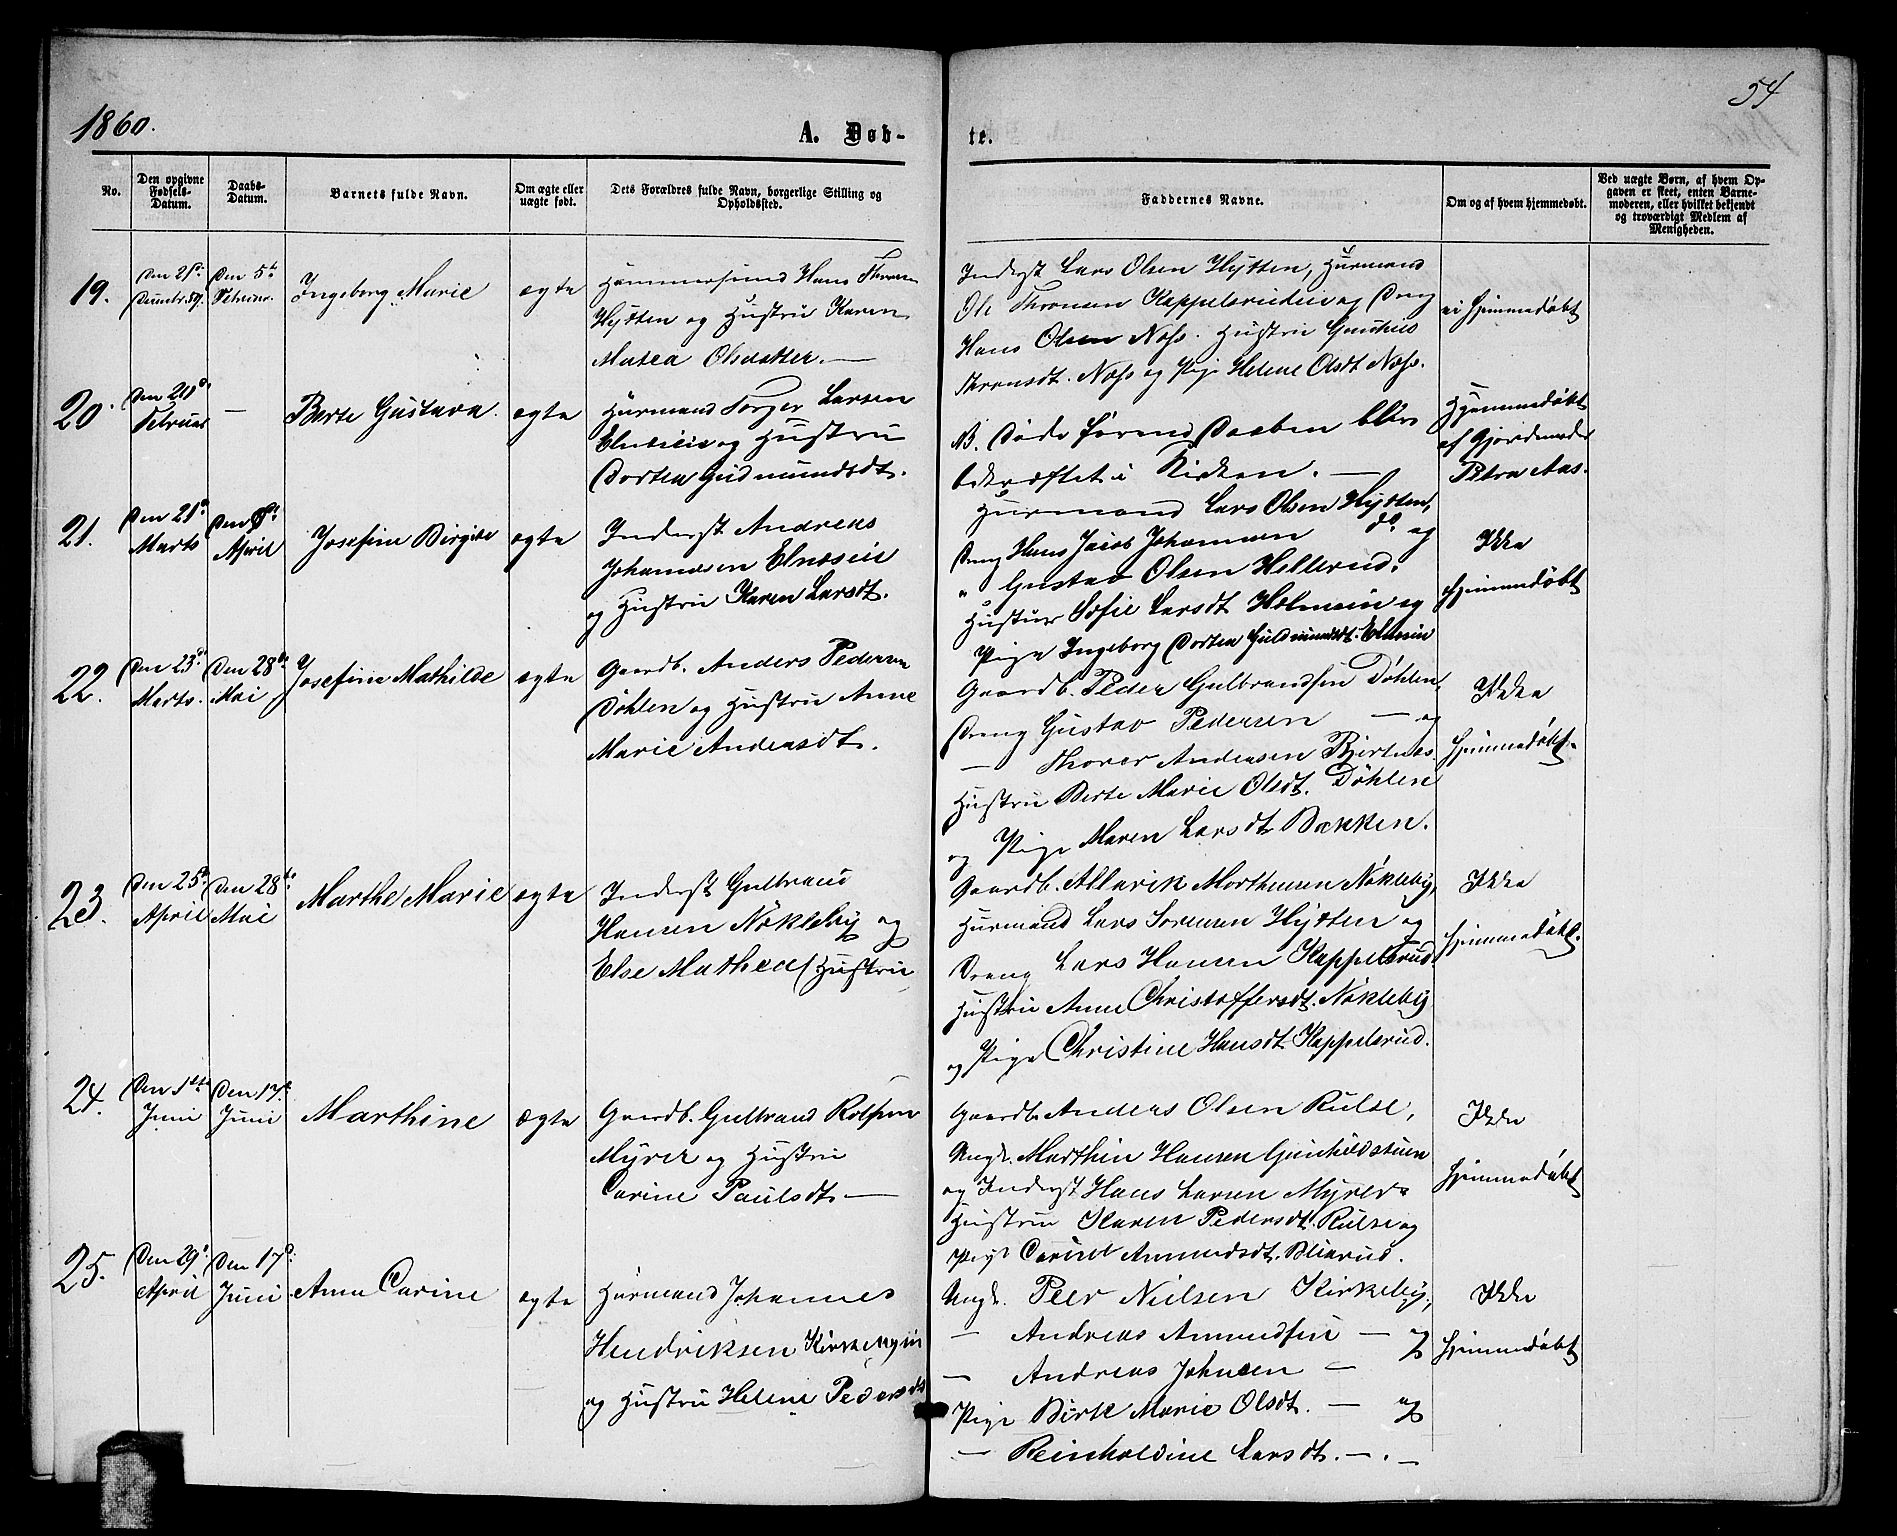 1860.
A. Døb-
te.
54
No.
Den opgivne Fødsels-Datum.
Daabs-Datum.
Barnets fulde Navn.
Om ægte eller uægte født.
Dets Forældres fulde Navn, borgerlige Stilling og Opholdssted.
Faddernes Navne.
Om og af hvem hjemmedøbt.
Ved uægte Børn, af hvem Op-
gaven er skeet, enten Barne-
moderen, eller hvilket bekjendt
og troværdigt Medlem af
Menigheden.
19.
Ingeborg Marie
ægte
Hans Thronsen
Hytten og Hustru Karen
Olsdatter.
Inderst Lars Olsen Hytten, Huusmand
Ole Thronsen Kappelsrudeie og Dreng
Hans Olsen Næss. Hustru
Thronsdt. Næss og Pige Helene Olsdt Næss.
ei hjemmedøbt
20.
Februar
—
Berte Gustava.
ægte
Huusmand Torger Larsen
Elnæseie og Hustru
Dortea Gudmundsdt.
Døde førend Daaben blev
bekræftet i Kirken.
Hjemmedøbt
af Gjordemoder
Petra Aas.
21.
Den 21de
Marts
April
Josefine Birgite
ægte
Inderst Andreas
Johannesen Elnæseie
og Hustru Karen Larsdt.
Huusmand Lars Olsen Hytten,
Dreng Hans Jacob Johannsen do og
" Gustav Olsen Hellerud.
Hustru Sofie Larsdt Holmeie og
Pige Ingeborg Dortea Guldmundsdt. Elnæseie
Ikke
hjemmedøbt
22.
Den 23de
Marts.
Den 28de
Mai
Josefine Mathilde
ægte
Gaardb. Anders Pedersen
Døhlen og Hustru Anne
Marie Andersdt.
Gaardb. Peder Gulbrandsen Døhlen,
Dreng Gustav Pedersen — og
— Thorer Andersen Bjertnæs.
Hustru Berte Marie Olsdt. Døhlen
og Pige Maren Larsdt Bakken.
Ikke
hjemmedøbt.
23.
Den 25de
April
Den 28de
Mai
Marthe Marie
ægte
Inderst Gulbrand
Hansen Nøkleby og
Else Mathea (Hustru
Gaardb. Allarik Morthensen Nøkleby,
Huusmand Lars Sørensen Hytten og
Dreng Lars Hansen Kappelsrud.
Hustru Anne Christoffersdt. Nøkleby
og Pige Christine Hansdt Kappelsrud.
Ikke
hjemmedøbt.
24.
Den 1ste
Juni
Den 17de
Juni
Marthine
ægte
Gaardb. Gulbrand Rolfsen
Myrer og Hustru
Carine Paulsdt —
Gaardb. Anders Olsen Rulse,
Ungk. Marthin Hansen Gunhildstuen
og Inderst Hans Larsen Myrer.
Hustru Karen Pedersdt. Rulse og
Pige Carine Amundsdt.
Ikke
hjemmedøbt
25.
Den 29de
April
Den 17de
Juni
Anne Carine
ægte
Huusmand Johannes
Hendriksen
og Hustru Helene Pedersdt
Ungk. Peer Nielsen Kirkeby,
— Andreas Amundsen — og
— Andreas Johnsen —
Pige Birte Marie Olsdt. — og
— Reinholdine Larsdt. — . —
Ikke
hjemmedøbt